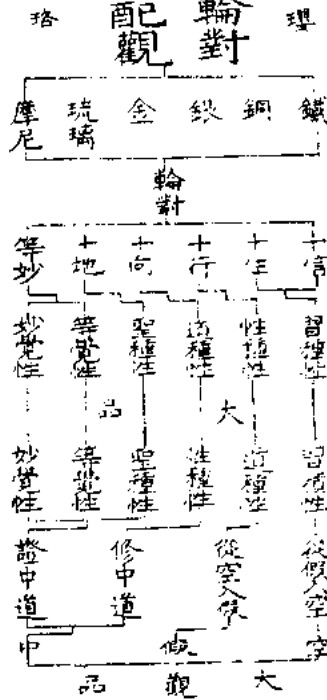 瓔珞
輪對
配觀
鐵
銅
銀
金
琉璃
摩尼
輪對
十信
十住
十行
十向
十地
等妙
習種性
性種性
道種性
聖種性
等覺性
妙覺性
大品
習種性
道種性
性種性
聖種性
等覺性
妙覺性
從假入空
從空入假
修中道
證中道
空
假
中
大觀品